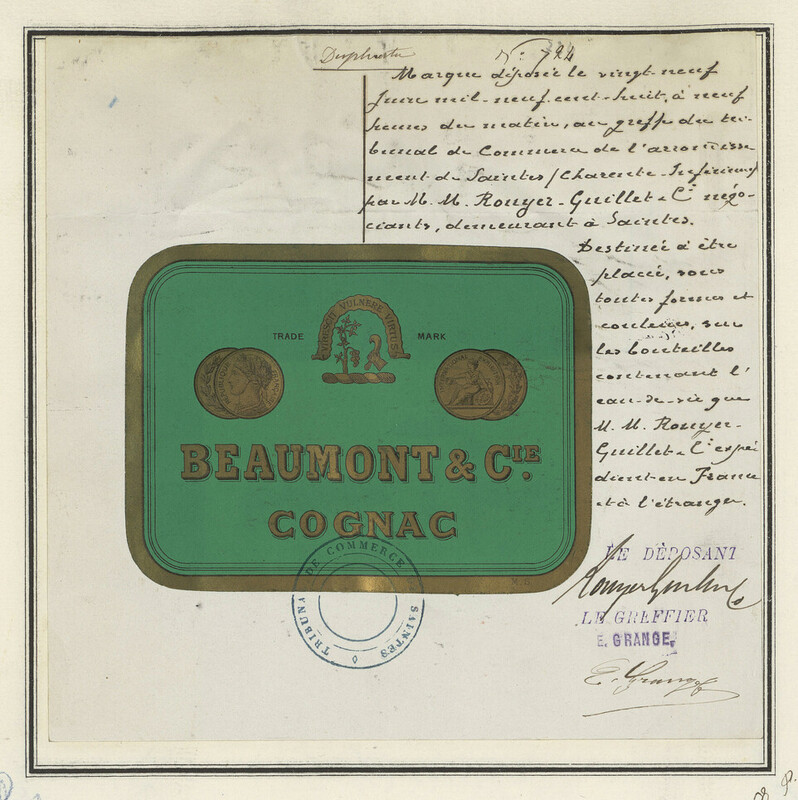 Duplicata
N: 724
Marque déposée le vingt-neuf
Juin mil-neuf-cent-huit, à neuf
heures du matin, au greffe du tri-
bunal de Commerce de l'arrondisse-
ment de Saintes (Charente-Inférieure)
par M. M. Rouyer-Guillet & Cie négo-
ciants, demeurant à Saintes.
Destinée à être
placée, sous
toutes formes et
couleurs, sur
les bouteilles
contenant l'
eau-de-vie que
M. M. Rouyer-
Guillet & Cie expé
dient en France
et à l'étranger.
VIRESCIT VULNERE VIRTUS
TRADE MARK
BEAUMONT & CIE.
COGNAC
TRIBUNAL DE COMMERCE
SAINTES
LE DÉPOSANT
Rouyer Guillet & Co
LE GREFFIER
E. GRANGE
E. Grange